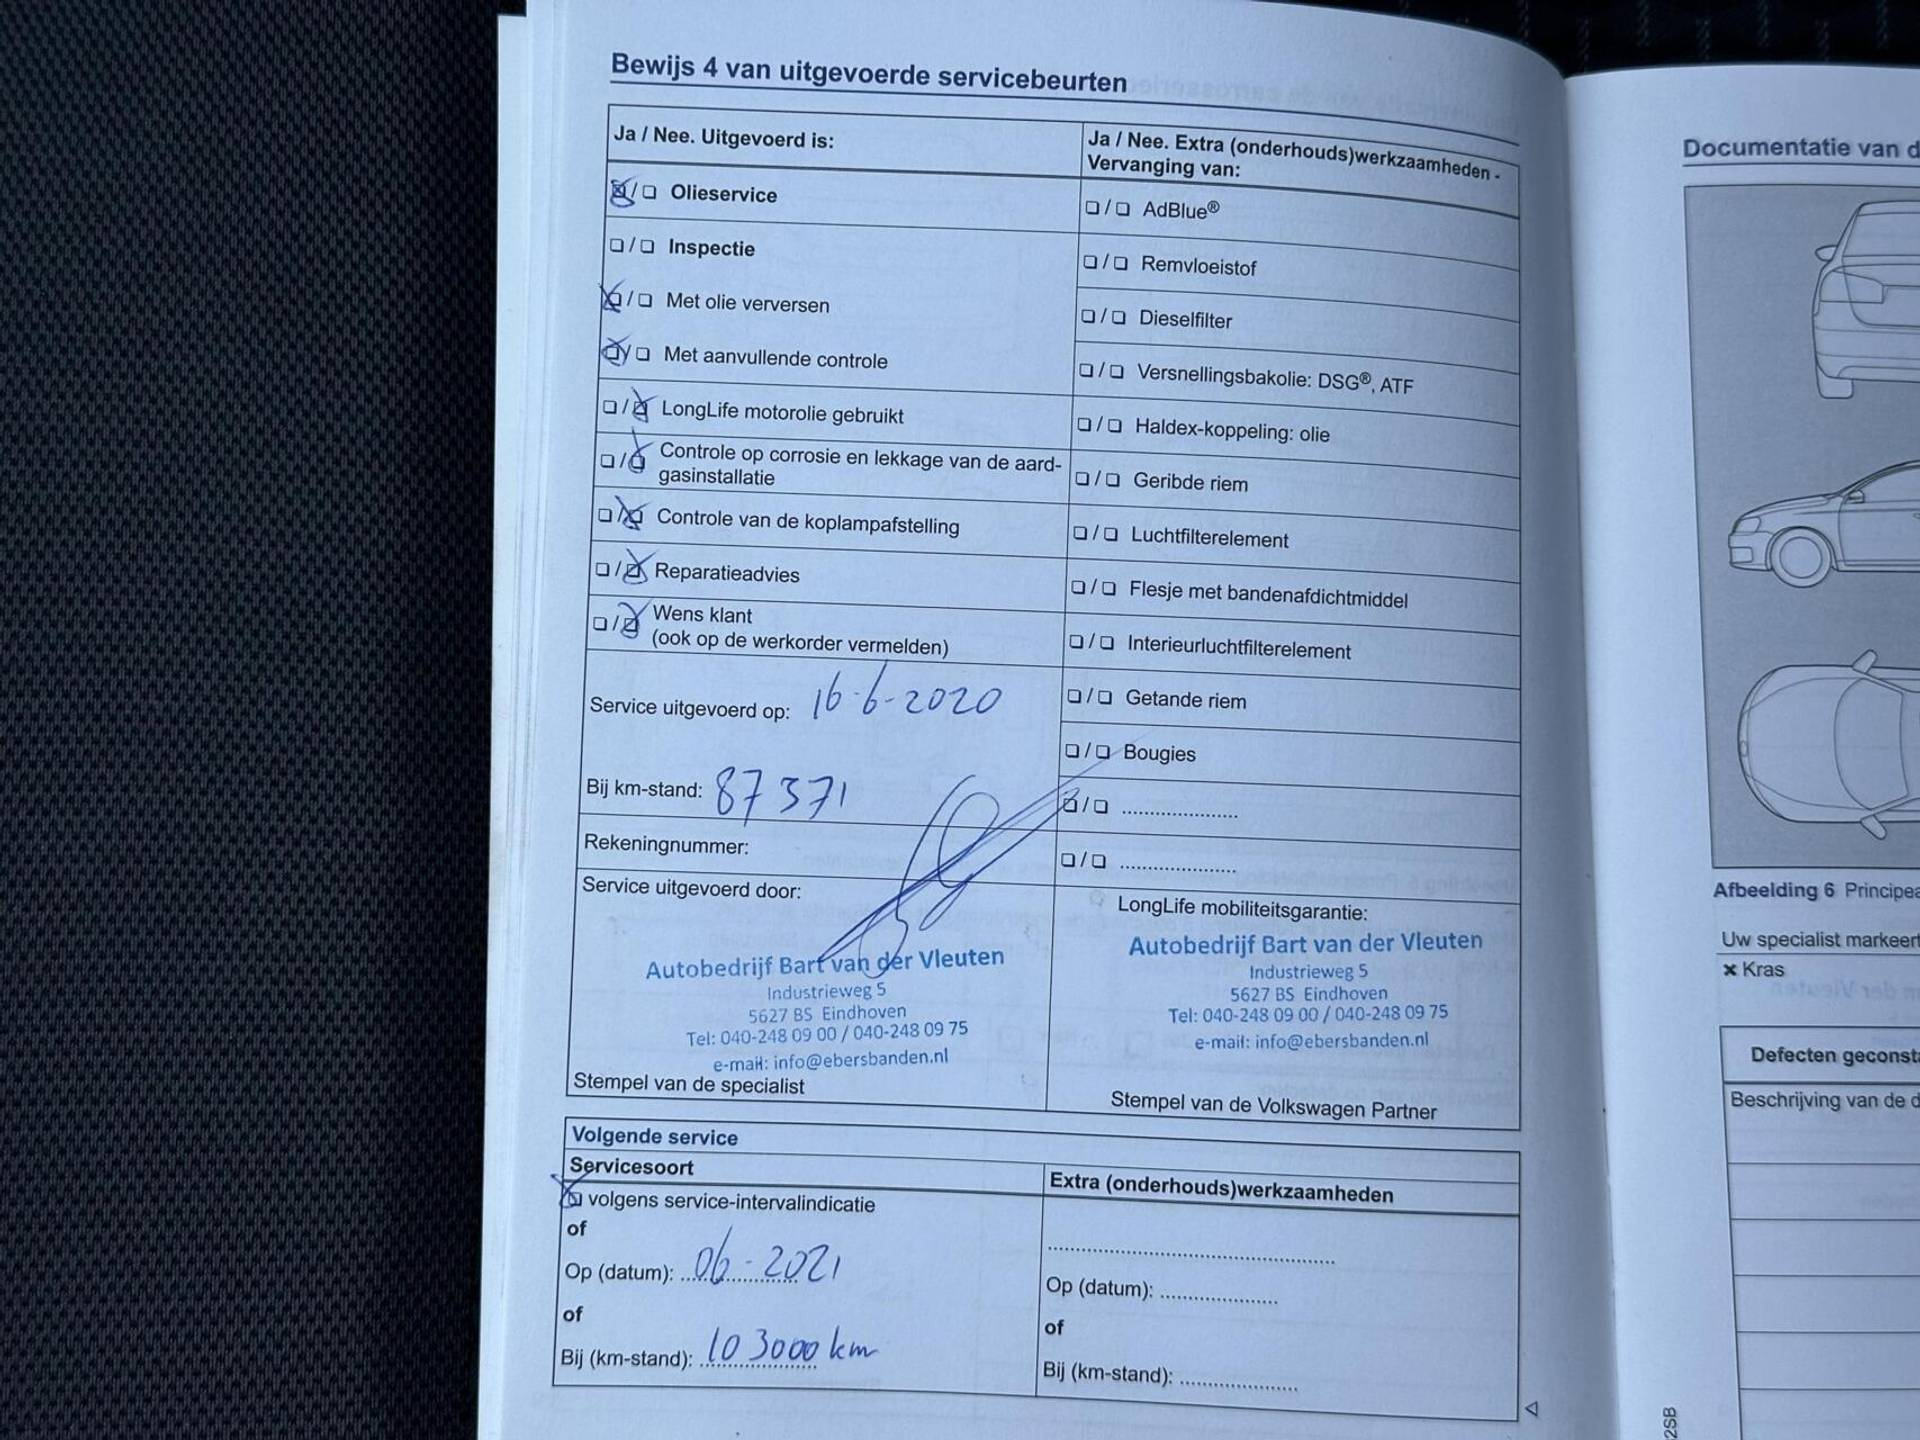 Bewijs 4 van uitgevoerde servicebeurten
Ja / Nee. Uitgevoerd is:
☒/❏ Olieservice
❏/❏ Inspectie
☒/❏ Met olie verversen
☒/❏ Met aanvullende controle
❏/☒ LongLife motorolie gebruikt
❏/☒ Controle op corrosie en lekkage van de aard-
gasinstallatie
❏/☒ Controle van de koplampafstelling
❏/☒ Reparatieadvies
❏/☒ Wens klant
(ook op de werkorder vermelden)
Service uitgevoerd op: 16-6-2020
Bij km-stand: 87371
Rekeningnummer:
Service uitgevoerd door:
Autobedrijf Bart van der Vleuten
Industrieweg 5
5627 BS Eindhoven
Tel: 040-248 09 00 / 040-248 09 75
e-mail: info@ebersbanden.nl
Stempel van de specialist
Ja / Nee. Extra (onderhouds)werkzaamheden -
Vervanging van:
❏/❏ AdBlue®
❏/❏ Remvloeistof
❏/❏ Dieselfilter
❏/❏ Versnellingsbakolie: DSG®, ATF
❏/❏ Haldex-koppeling: olie
❏/❏ Geribde riem
❏/❏ Luchtfilterelement
❏/❏ Flesje met bandenafdichtmiddel
❏/❏ Interieurluchtfilterelement
❏/❏ Getande riem
❏/❏ Bougies
❏/❏ .....................
❏/❏ .....................
LongLife mobiliteitsgarantie:
Autobedrijf Bart van der Vleuten
Industrieweg 5
5627 BS Eindhoven
Tel: 040-248 09 00 / 040-248 09 75
e-mail: info@ebersbanden.nl
Stempel van de Volkswagen Partner
Volgende service
Servicesoort
☒ volgens service-intervalindicatie
of
Op (datum): 06-2021
of
Bij (km-stand): 103000 km
Extra (onderhouds)werkzaamheden
..................................................
Op (datum): .....................
of
Bij (km-stand): .....................
Documentatie van d
Afbeelding 6 Principea
Uw specialist markeert
× Kras
Defecten geconsta
Beschrijving van de d
2SB